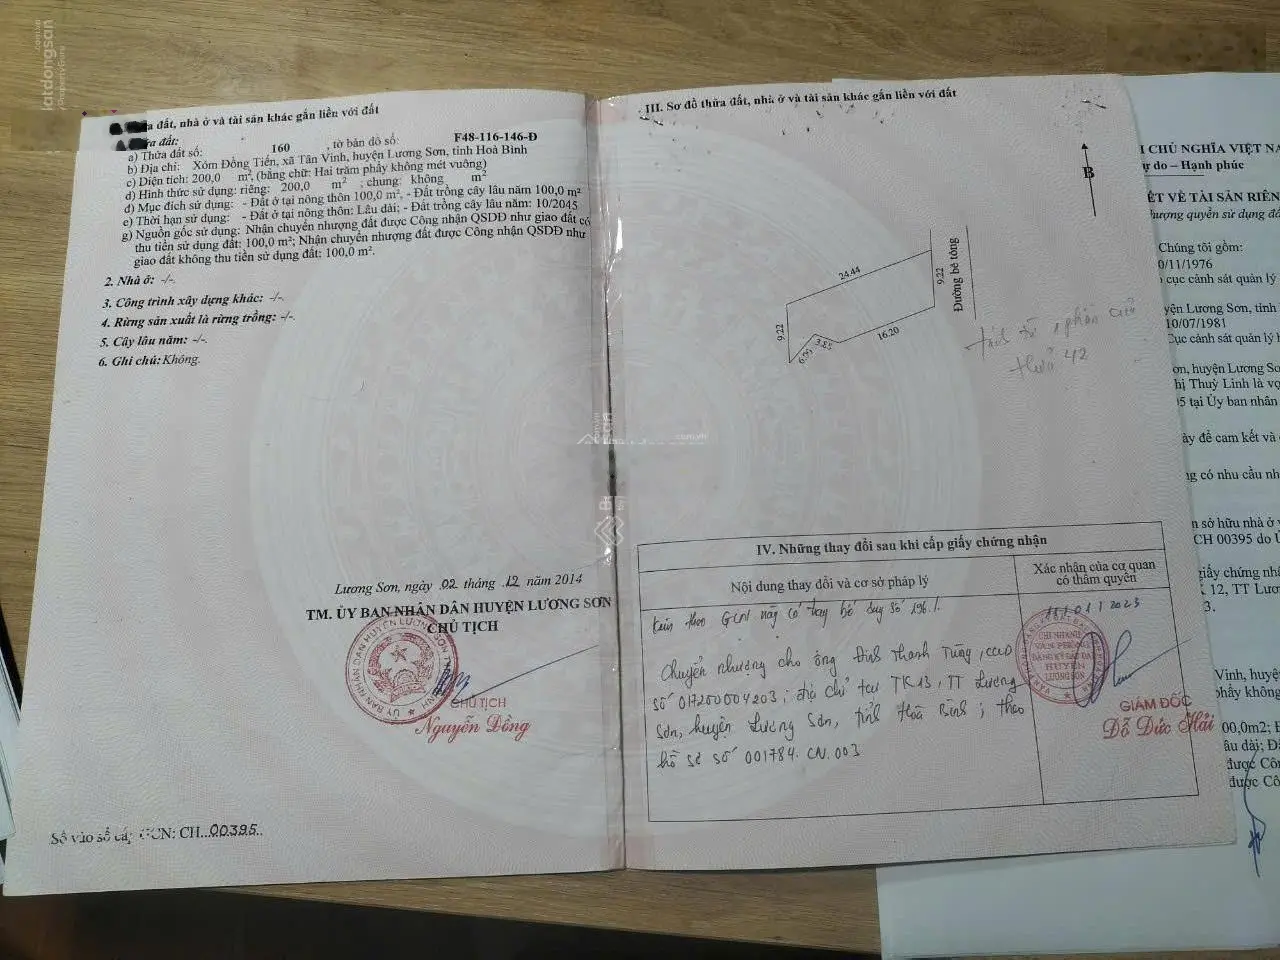 batdongsan
.com.vn
by PropertyGuru
ửa đất, nhà ở và tài sản khác gắn liền với đất
ửa đất:
a) Thửa đất số: 160 , tờ bản đồ số: F48-116-146-Đ
b) Địa chỉ: Xóm Đồng Tiến, xã Tân Vinh, huyện Lương Sơn, tỉnh Hoà Bình
c) Diện tích: 200,0 m², (bằng chữ: Hai trăm phẩy không mét vuông)
d) Hình thức sử dụng: riêng: 200,0 m² ; chung: không m²
đ) Mục đích sử dụng: - Đất ở tại nông thôn 100,0 m², - Đất trồng cây lâu năm 100,0 m²
e) Thời hạn sử dụng: - Đất ở tại nông thôn: Lâu dài; - Đất trồng cây lâu năm: 10/2045
g) Nguồn gốc sử dụng: Nhận chuyển nhượng đất được Công nhận QSDĐ như giao đất có
thu tiền sử dụng đất: 100,0 m²; Nhận chuyển nhượng đất được Công nhận QSDĐ như
giao đất không thu tiền sử dụng đất: 100,0 m².
2. Nhà ở: -/-
3. Công trình xây dựng khác: -/-
4. Rừng sản xuất là rừng trồng: -/-
5. Cây lâu năm: -/-
6. Ghi chú: Không.
Lương Sơn, ngày 02 tháng 12 năm 2014
TM. ỦY BAN NHÂN DÂN HUYỆN LƯƠNG SƠN
CHỦ TỊCH
CHỦ TỊCH
Nguyễn Đồng
Số vào sổ cấp GCN: CH..00395..
III. Sơ đồ thửa đất, nhà ở và tài sản khác gắn liền với đất
B
24.44
9.22
Đường bê tông
9.22
16.20
3.85
6.09
tách từ 1 phần của
thửa 42
IV. Những thay đổi sau khi cấp giấy chứng nhận
Nội dung thay đổi và cơ sở pháp lý
Xác nhận của cơ quan
có thẩm quyền
Kèm theo GCN này có trang bổ sung số 196./.
Chuyển nhượng cho ông Đinh Thanh Tùng, CCCD
số 017200004203; địa chỉ tại TK13, TT Lương
Sơn, huyện Lương Sơn, tỉnh Hoà Bình; theo
hồ sơ số 001784.CN.003
/01/2023
CHI NHÁNH
VĂN PHÒNG
ĐĂNG KÝ ĐẤT ĐAI
HUYỆN
LƯƠNG SƠN
GIÁM ĐỐC
Đỗ Đức Hải
CHỦ NGHĨA VIỆT NA
do – Hạnh phúc
VỀ TÀI SẢN RIÊN
quyền sử dụng đấ
Chúng tôi gồm:
0/11/1976
cục cảnh sát quản lý
huyện Lương Sơn, tỉnh
10/07/1981
Cục cảnh sát quản lý h
huyện Lương Sơ
Thuỳ Linh là vợ
tại Ủy ban nhân
để cam kết và
có nhu cầu nh
sở hữu nhà ở v
CH 00395 do
giấy chứng nhậ
12, TT Lươ
3.
Vinh, huyệ
phẩy không
00,0m2; Đ
dài; Đấ
được Côn
được Cô